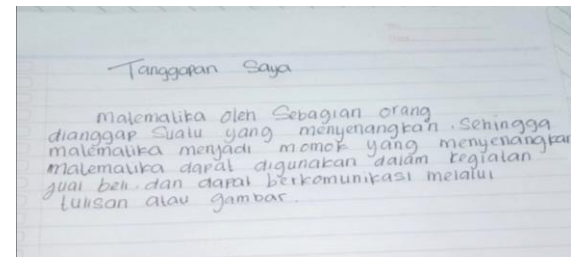 Tanggapan Saya
Matematika oleh Sebagian orang
dianggap Suatu yang menyenangkan. Sehingga
matematika menjadi momok yang menyenangkan
matematika dapat digunakan dalam kegiatan
jual beli. dan dapat berkomunikasi melalui
tulisan atau gambar.